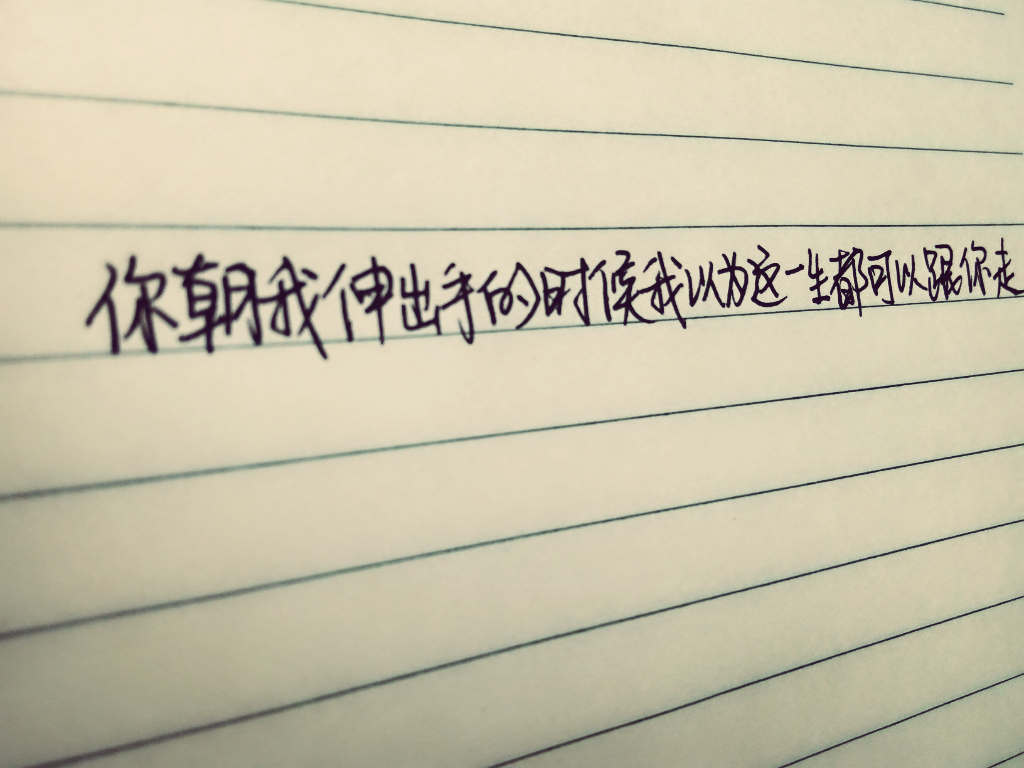 你朝我伸出手的时候我以为这一生都可以跟你走